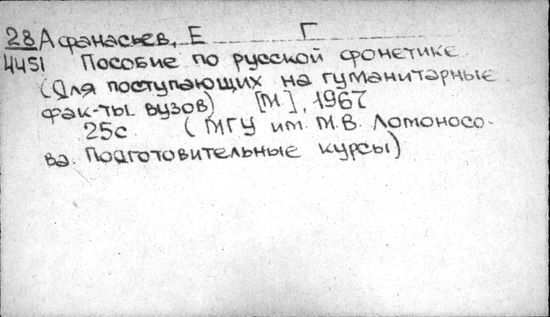 28 Афанасьев, Е Г
4451 Пособие по русской фонетике
(Для поступающих на гуманитарные
фак-ты вузов) [М], 1967
25с (МГУ им. М.В. Ломоносо-
ва. Подготовительные курсы)